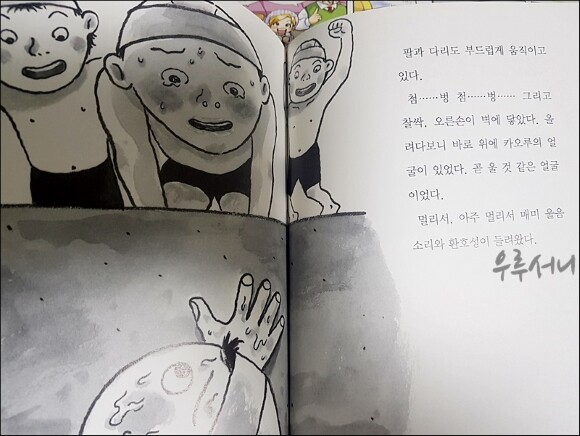 팔과 다리도 부드럽게 움직이고
있다.
첨……벙 첨……벙…… 그리고
찰싹. 오른손이 벽에 닿았다. 올
려다보니 바로 위에 카오루의 얼
굴이 있었다. 곧 울 것 같은 얼굴
이었다.
멀리서, 아주 멀리서 매미 울음
소리와 환호성이 들려왔다.
우루서니